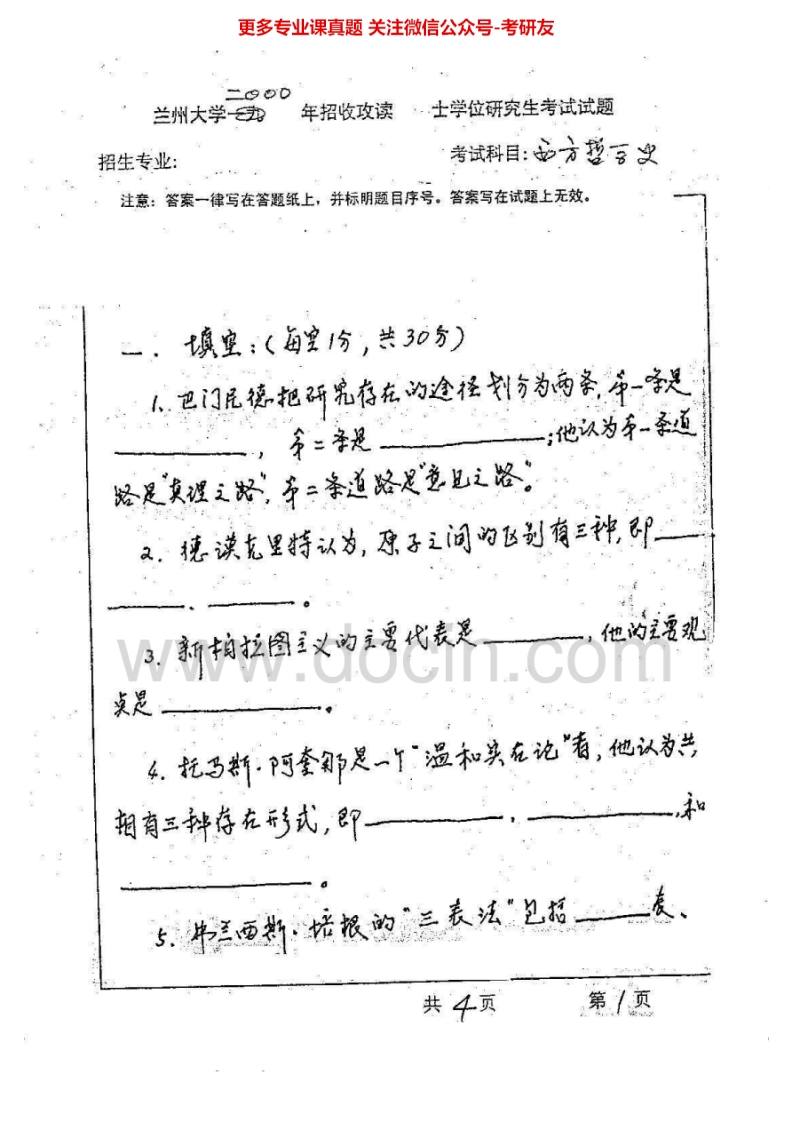 更多专业课真题 关注微信公众号-考研友
二000
兰州大学 年招收攻读 士学位研究生考试试题
招生专业: 考试科目:西方哲学史
注意：答案一律写在答题纸上，并标明题目序号。答案写在试题上无效。
一．填空：(每空1分，共30分)
1、巴门尼德把研究存在的途径划分为两条，第一条是
____，第二条是____；他认为第一条道
路是"真理之路"，第二条道路是"意见之路"。
2、德谟克里特认为，原子之间的区别有三种，即____
____、____。
3、新柏拉图主义的主要代表是____，他的主要观
点是____。
4、托马斯·阿奎那是一个"温和实在论"者，他认为共
相有三种存在形式，即____，____，和
____。
5、弗兰西斯·培根的"三表法"包括____表、
www.docin.com
共4页 第1页